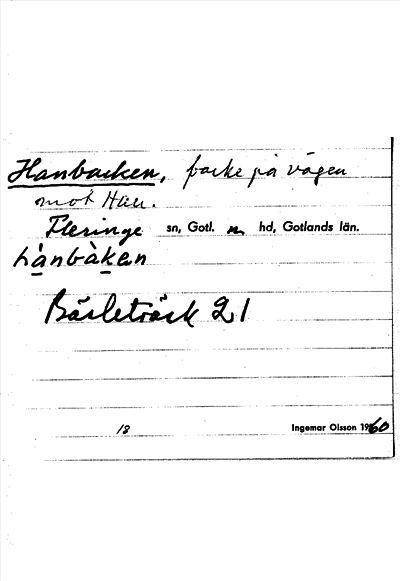 Hanbacken, backe på vägen
mot Hau.
Fleringe sn, Gotl. n hd, Gotlands län.
hànbàkan
Bäsleträsk 21
18 Ingemar Olsson 1960